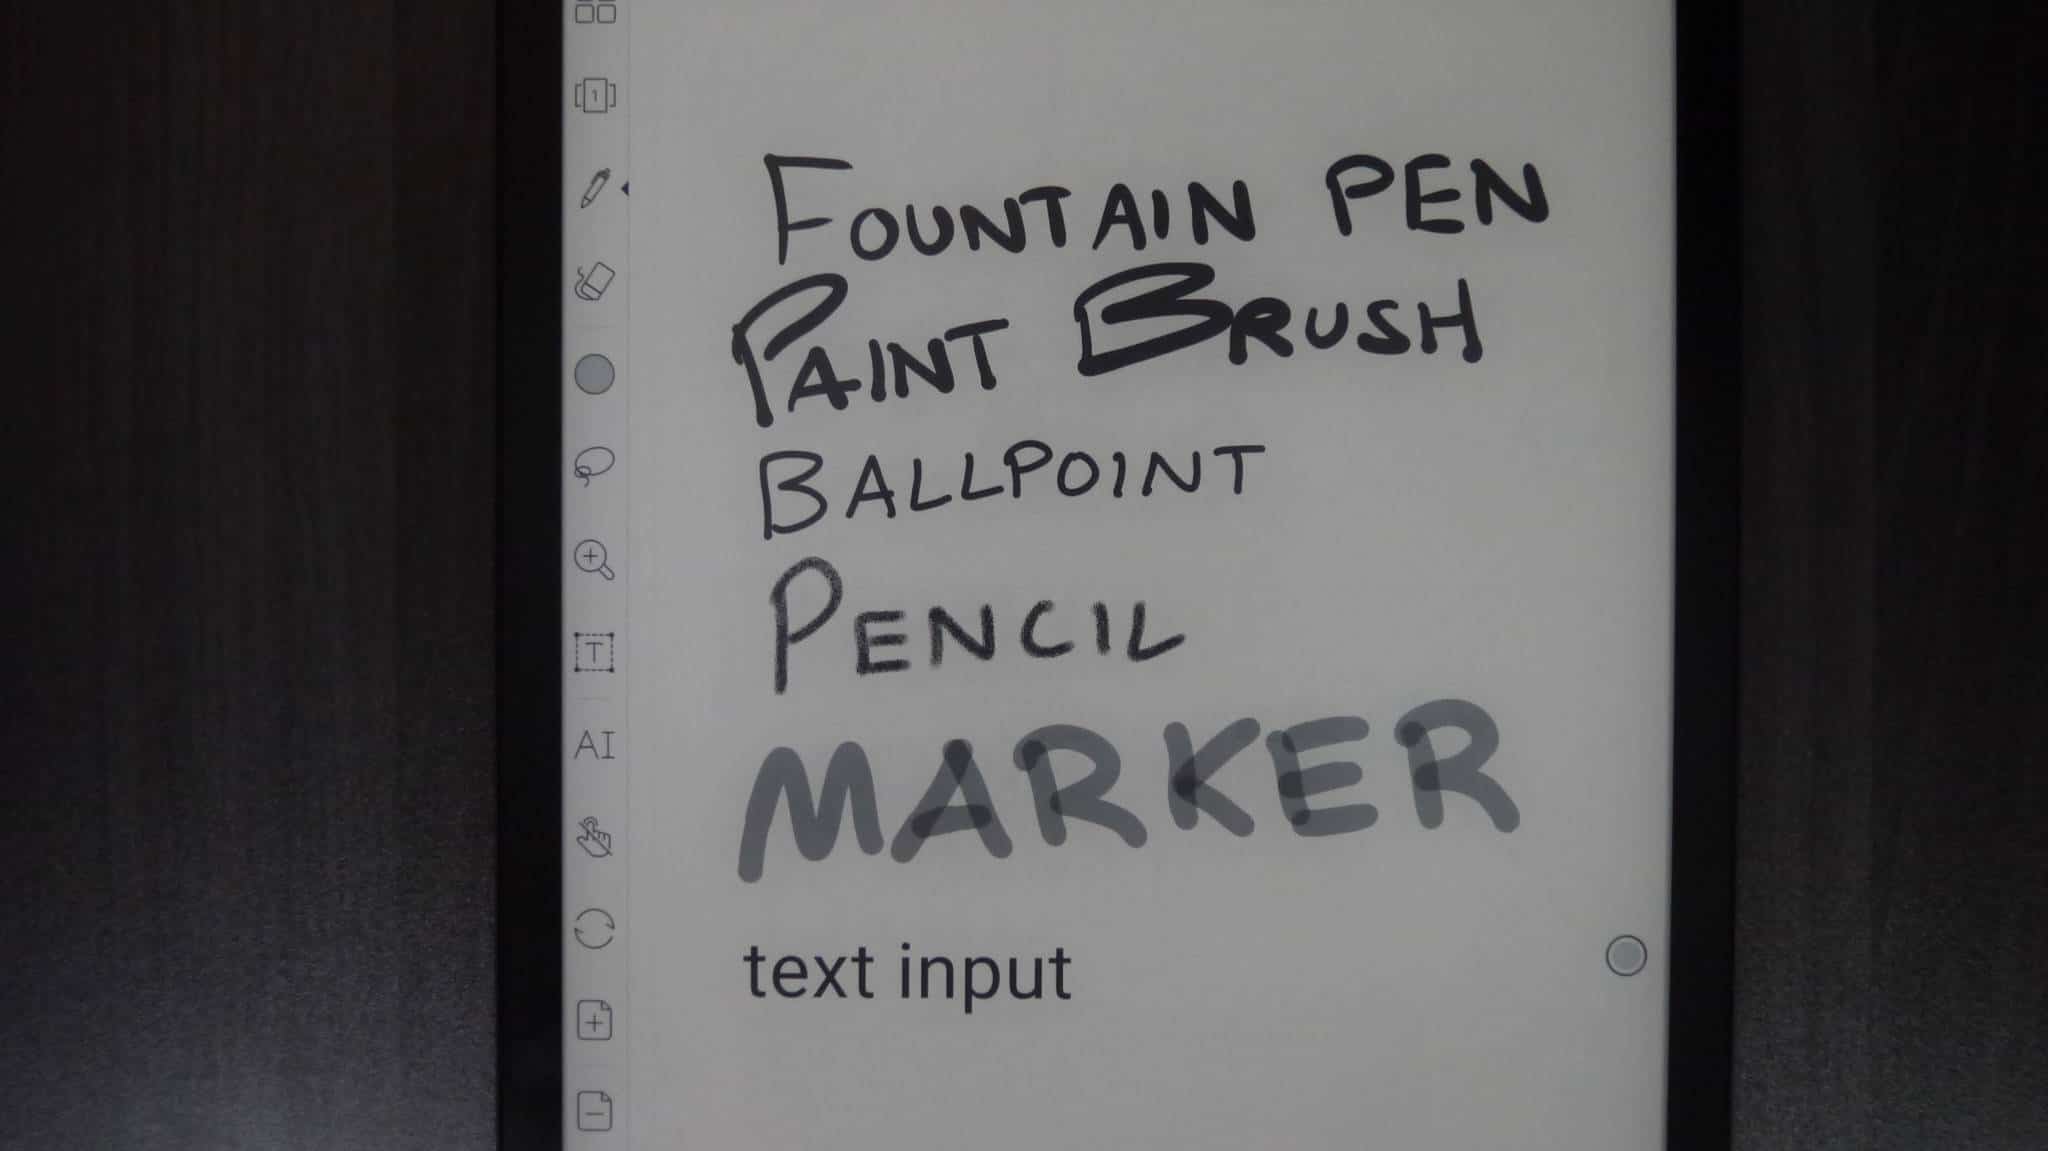 1
FOUNTAIN PEN
PAINT BRUSH
BALLPOINT
PENCIL
T
MARKER
AI
text input